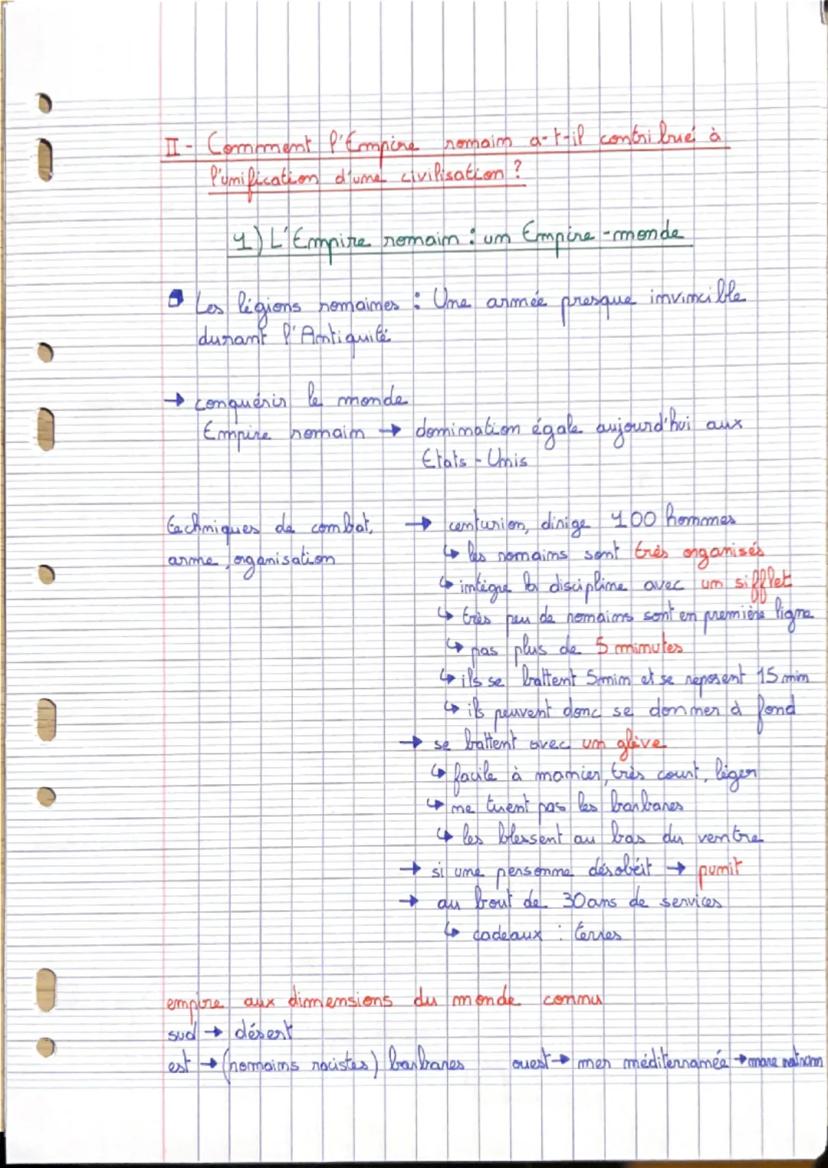 II - Comment l'Empire romain a-t-il contribué à
l'unification d'une civilisation ?
1) L'Empire romain : un Empire-monde
Les légions romaines : Une armée presque invincible
durant l'Antiquité
→ conquérir le monde
Empire romain → domination égale aujourd'hui aux
Etats-Unis
techniques de combat, → centurion, dirige 100 hommes
arme, organisation ↳ les romains sont très organisés
↳ intègre la discipline avec un sifflet
↳ très peu de romains sont en première ligne
↳ pas plus de 5 minutes
↳ ils se battent 5min et se reposent 15 min
↳ ils peuvent donc se donner à fond
→ se battent avec un glève
↳ facile à manier, très court, léger
↳ ne tuent pas les barbares
↳ les blessent au bas du ventre
→ si une personne désobéit → punit
→ au bout de 30 ans de services
↳ cadeaux : terres
empire aux dimensions du monde connu
sud → désert
est → (romains racistes) barbares ouest → mer méditerranée → mare